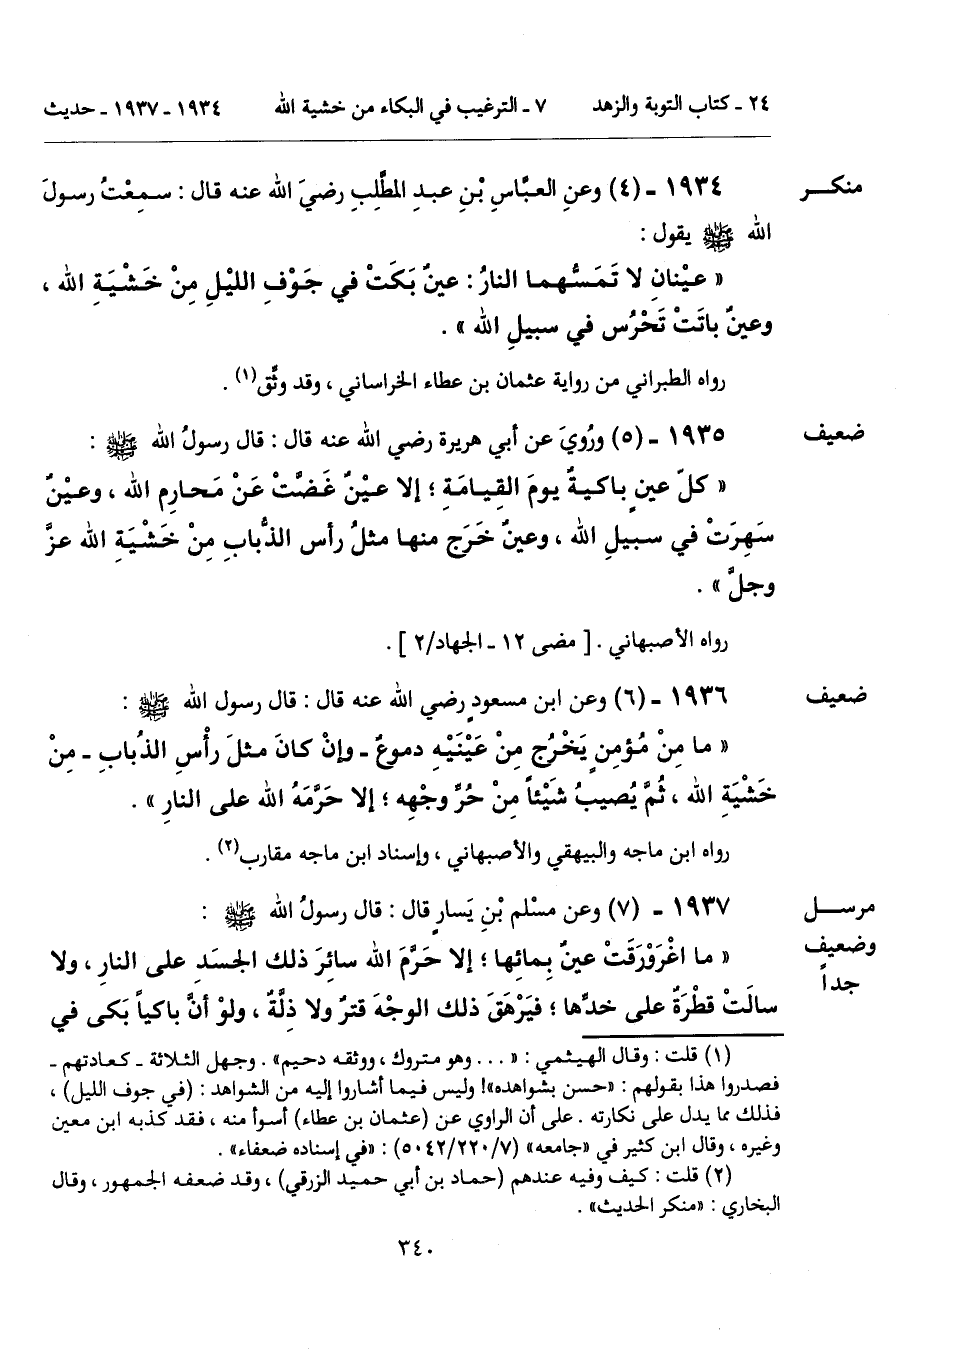 ٢٤ ـ كتاب التوبة والزهد ٧ ـ الترغيب في البكاء من خشية الله ١٩٣٤ ـ ١٩٣٧ ـ حديث
منكـــر ١٩٣٤ ـ (٤) وعنِ العبَّاسِ بْنِ عبدِ المطَّلِبِ رضيَ الله عنه قال : سمِعْتُ رسولَ
الله ﷺ يقول :
« عيْنانِ لا تَمَسُّهما النارُ : عينٌ بَكَتْ في جَوْفِ الليْلِ مِنْ خَشْيَةِ الله ،
وعينٌ باتَتْ تَحْرُس في سبيلِ الله » .
رواه الطبراني من رواية عثمان بن عطاء الخراساني ، وقد وثَّق(١) .
ضعيف ١٩٣٥ ـ (٥) ورُويَ عن أبي هريرة رضي الله عنه قال : قال رسولُ الله ﷺ :
« كلّ عينٍ باكيةٌ يومَ القِيامَةِ ؛ إلا عيْنٌ غَضَّتْ عَنْ مَحارِم الله ، وعيْنٌ
سَهِرَتْ في سبيلِ الله ، وعينٌ خَرَج منها مثلُ رأس الذُّبابِ مِنْ خَشْيَةِ الله عزَّ
وجلَّ » .
رواه الأصبهاني . [ مضى ١٢ ـ الجهاد/٢ ] .
ضعيف ١٩٣٦ ـ (٦) وعن ابن مسعودٍ رضي الله عنه قال : قال رسول الله ﷺ :
« ما مِنْ مُؤمنٍ يَخْرُج مِنْ عَيْنَيْهِ دموعٌ ـ وإنْ كانَ مثلَ رأْسِ الذُبابِ ـ مِنْ
خَشْيَةِ الله ، ثُمَّ يُصيبُ شَيْئاً مِنْ حُرِّ وجْهِه ؛ إلا حَرَّمَهُ الله على النارِ » .
رواه ابن ماجه والبيهقي والأصبهاني ، وإسناد ابن ماجه مقارب(٢) .
مرســـل ١٩٣٧ ـ (٧) وعن مسْلم بْنِ يَسارٍ قال : قال رسولُ الله ﷺ :
وضعيف « ما اغْرَوْرَقَتْ عينٌ بِمائها ؛ إلا حَرَّمَ الله سائرَ ذلك الجسَدِ على النارِ ، ولا
جداً سالَتْ قطْرَةٌ على خدَّها ؛ فيَرْهَقَ ذلك الوجْهَ قترٌ ولا ذِلَّةٌ ، ولوْ أنَّ باكياً بَكى في
(١) قلت : وقال الهيثمي : « . . . وهو متروك ، ووثقه دحيم» . وجهل الثلاثة ـ كعادتهم ـ
فصدروا هذا بقولهم : «حسن بشواهده»! وليس فيما أشاروا إليه من الشواهد : (في جوف الليل) ،
فذلك مما يدل على نكارته . على أن الراوي عن (عثمان بن عطاء) أسوأ منه ، فقد كذبه ابن معين
وغيره ، وقال ابن كثير في «جامعه» (٥٠٤٢/٢٢٠/٧) : «في إسناده ضعفاء» .
(٢) قلت : كيف وفيه عندهم (حماد بن أبي حميد الزرقي) ، وقد ضعفه الجمهور ، وقال
البخاري : «منكر الحديث» .
٣٤٠